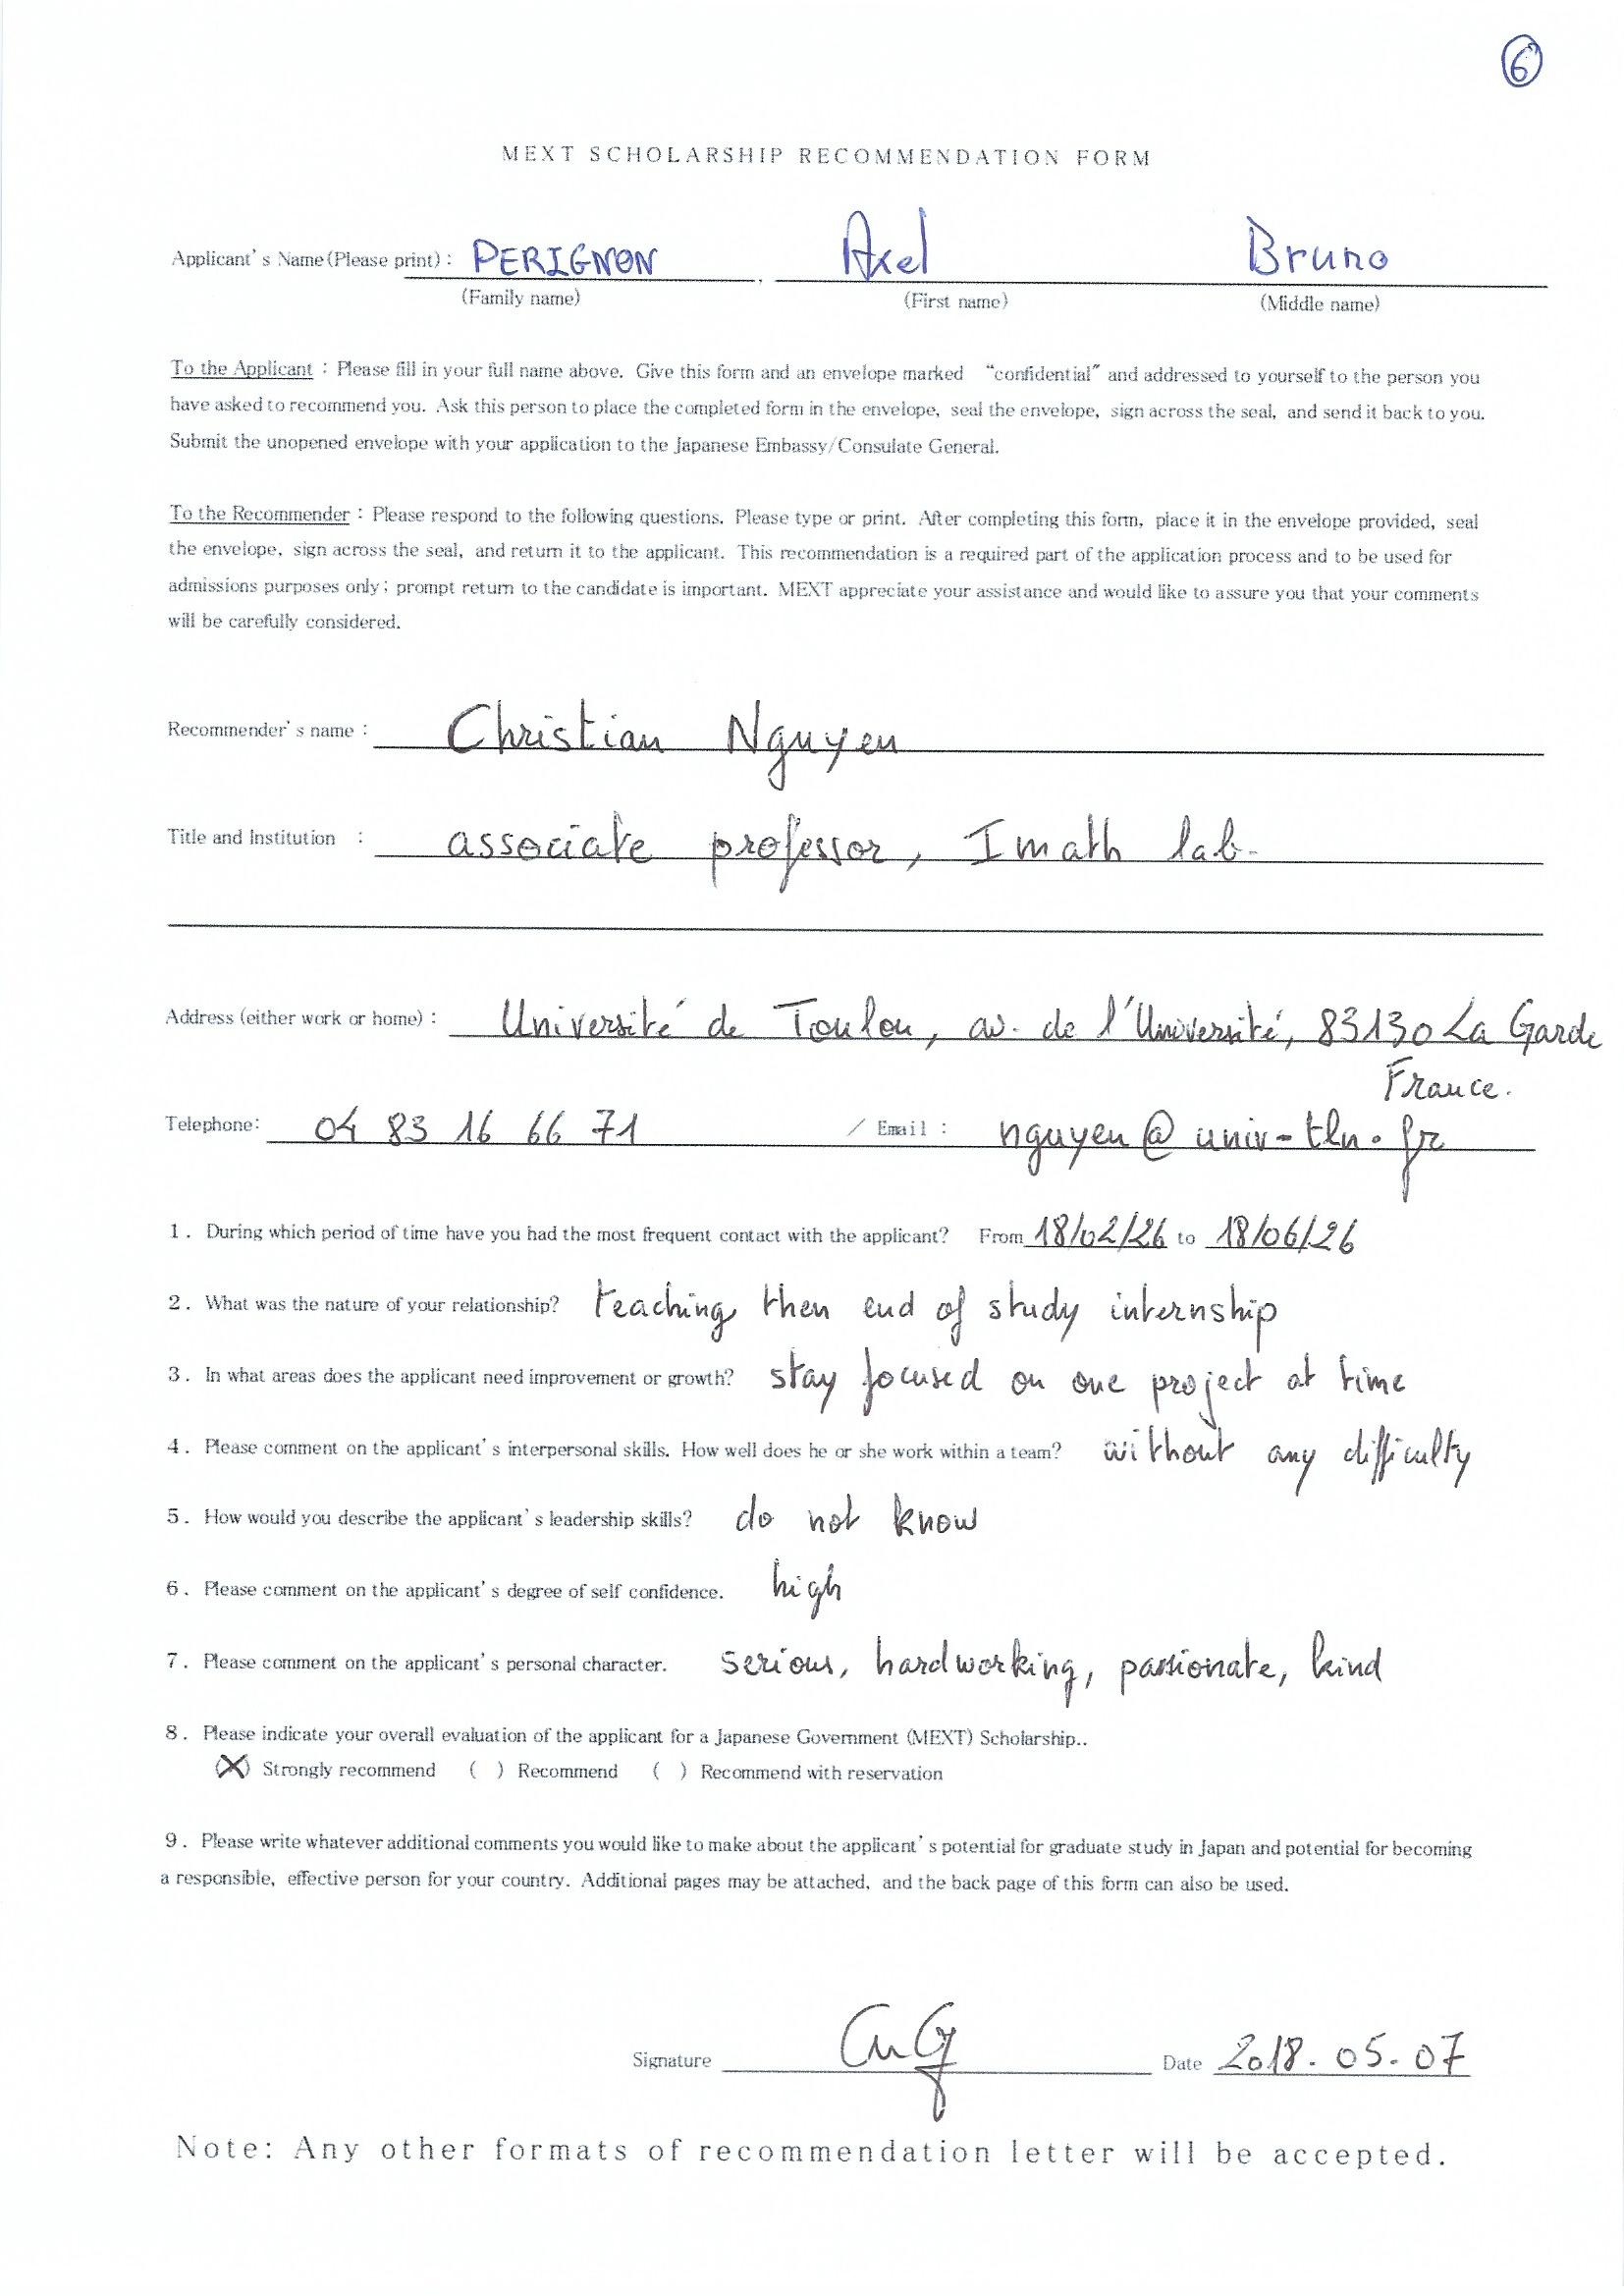 6
MEXT SCHOLARSHIP RECOMMENDATION FORM
Applicant's Name(Please print): PERIGNON, Axel Bruno
(Family name) (First name) (Middle name)
To the Applicant : Please fill in your full name above. Give this form and an envelope marked "confidential" and addressed to yourself to the person you
have asked to recommend you. Ask this person to place the completed form in the envelope, seal the envelope, sign across the seal, and send it back to you.
Submit the unopened envelope with your application to the Japanese Embassy/Consulate General.
To the Recommender : Please respond to the following questions. Please type or print. After completing this form, place it in the envelope provided, seal
the envelope, sign across the seal, and return it to the applicant. This recommendation is a required part of the application process and to be used for
admissions purposes only; prompt return to the candidate is important. MEXT appreciate your assistance and would like to assure you that your comments
will be carefully considered.
Recommender's name : Christian Nguyen
Title and Institution : associate professor, Imath lab.
Address (either work or home) : Université de Toulon, av. de l'Université, 83130 La Garde
France.
Telephone: 04 83 16 66 71 / Email : nguyen@univ-tln.fr
1. During which period of time have you had the most frequent contact with the applicant? From 18/02/26 to 18/06/26
2. What was the nature of your relationship? teaching then end of study internship
3. In what areas does the applicant need improvement or growth? stay focused on one project at time
4. Please comment on the applicant's interpersonal skills. How well does he or she work within a team? without any difficulty
5. How would you describe the applicant's leadership skills? do not know
6. Please comment on the applicant's degree of self confidence. high
7. Please comment on the applicant's personal character. serious, hardworking, passionate, kind
8. Please indicate your overall evaluation of the applicant for a Japanese Government (MEXT) Scholarship..
(X) Strongly recommend ( ) Recommend ( ) Recommend with reservation
9. Please write whatever additional comments you would like to make about the applicant's potential for graduate study in Japan and potential for becoming
a responsible, effective person for your country. Additional pages may be attached, and the back page of this form can also be used.
Signature Date 2018.05.07
Note: Any other formats of recommendation letter will be accepted.